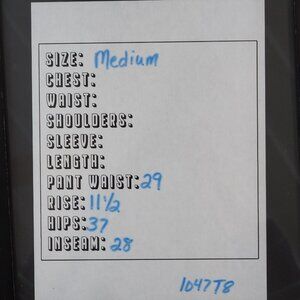 SIZE: Medium
CHEST:
WAIST:
SHOULDERS:
SLEEVE:
LENGTH:
PANT WAIST: 29
RISE: 11 1/2
HIPS: 37
INSEAM: 28
1047T8